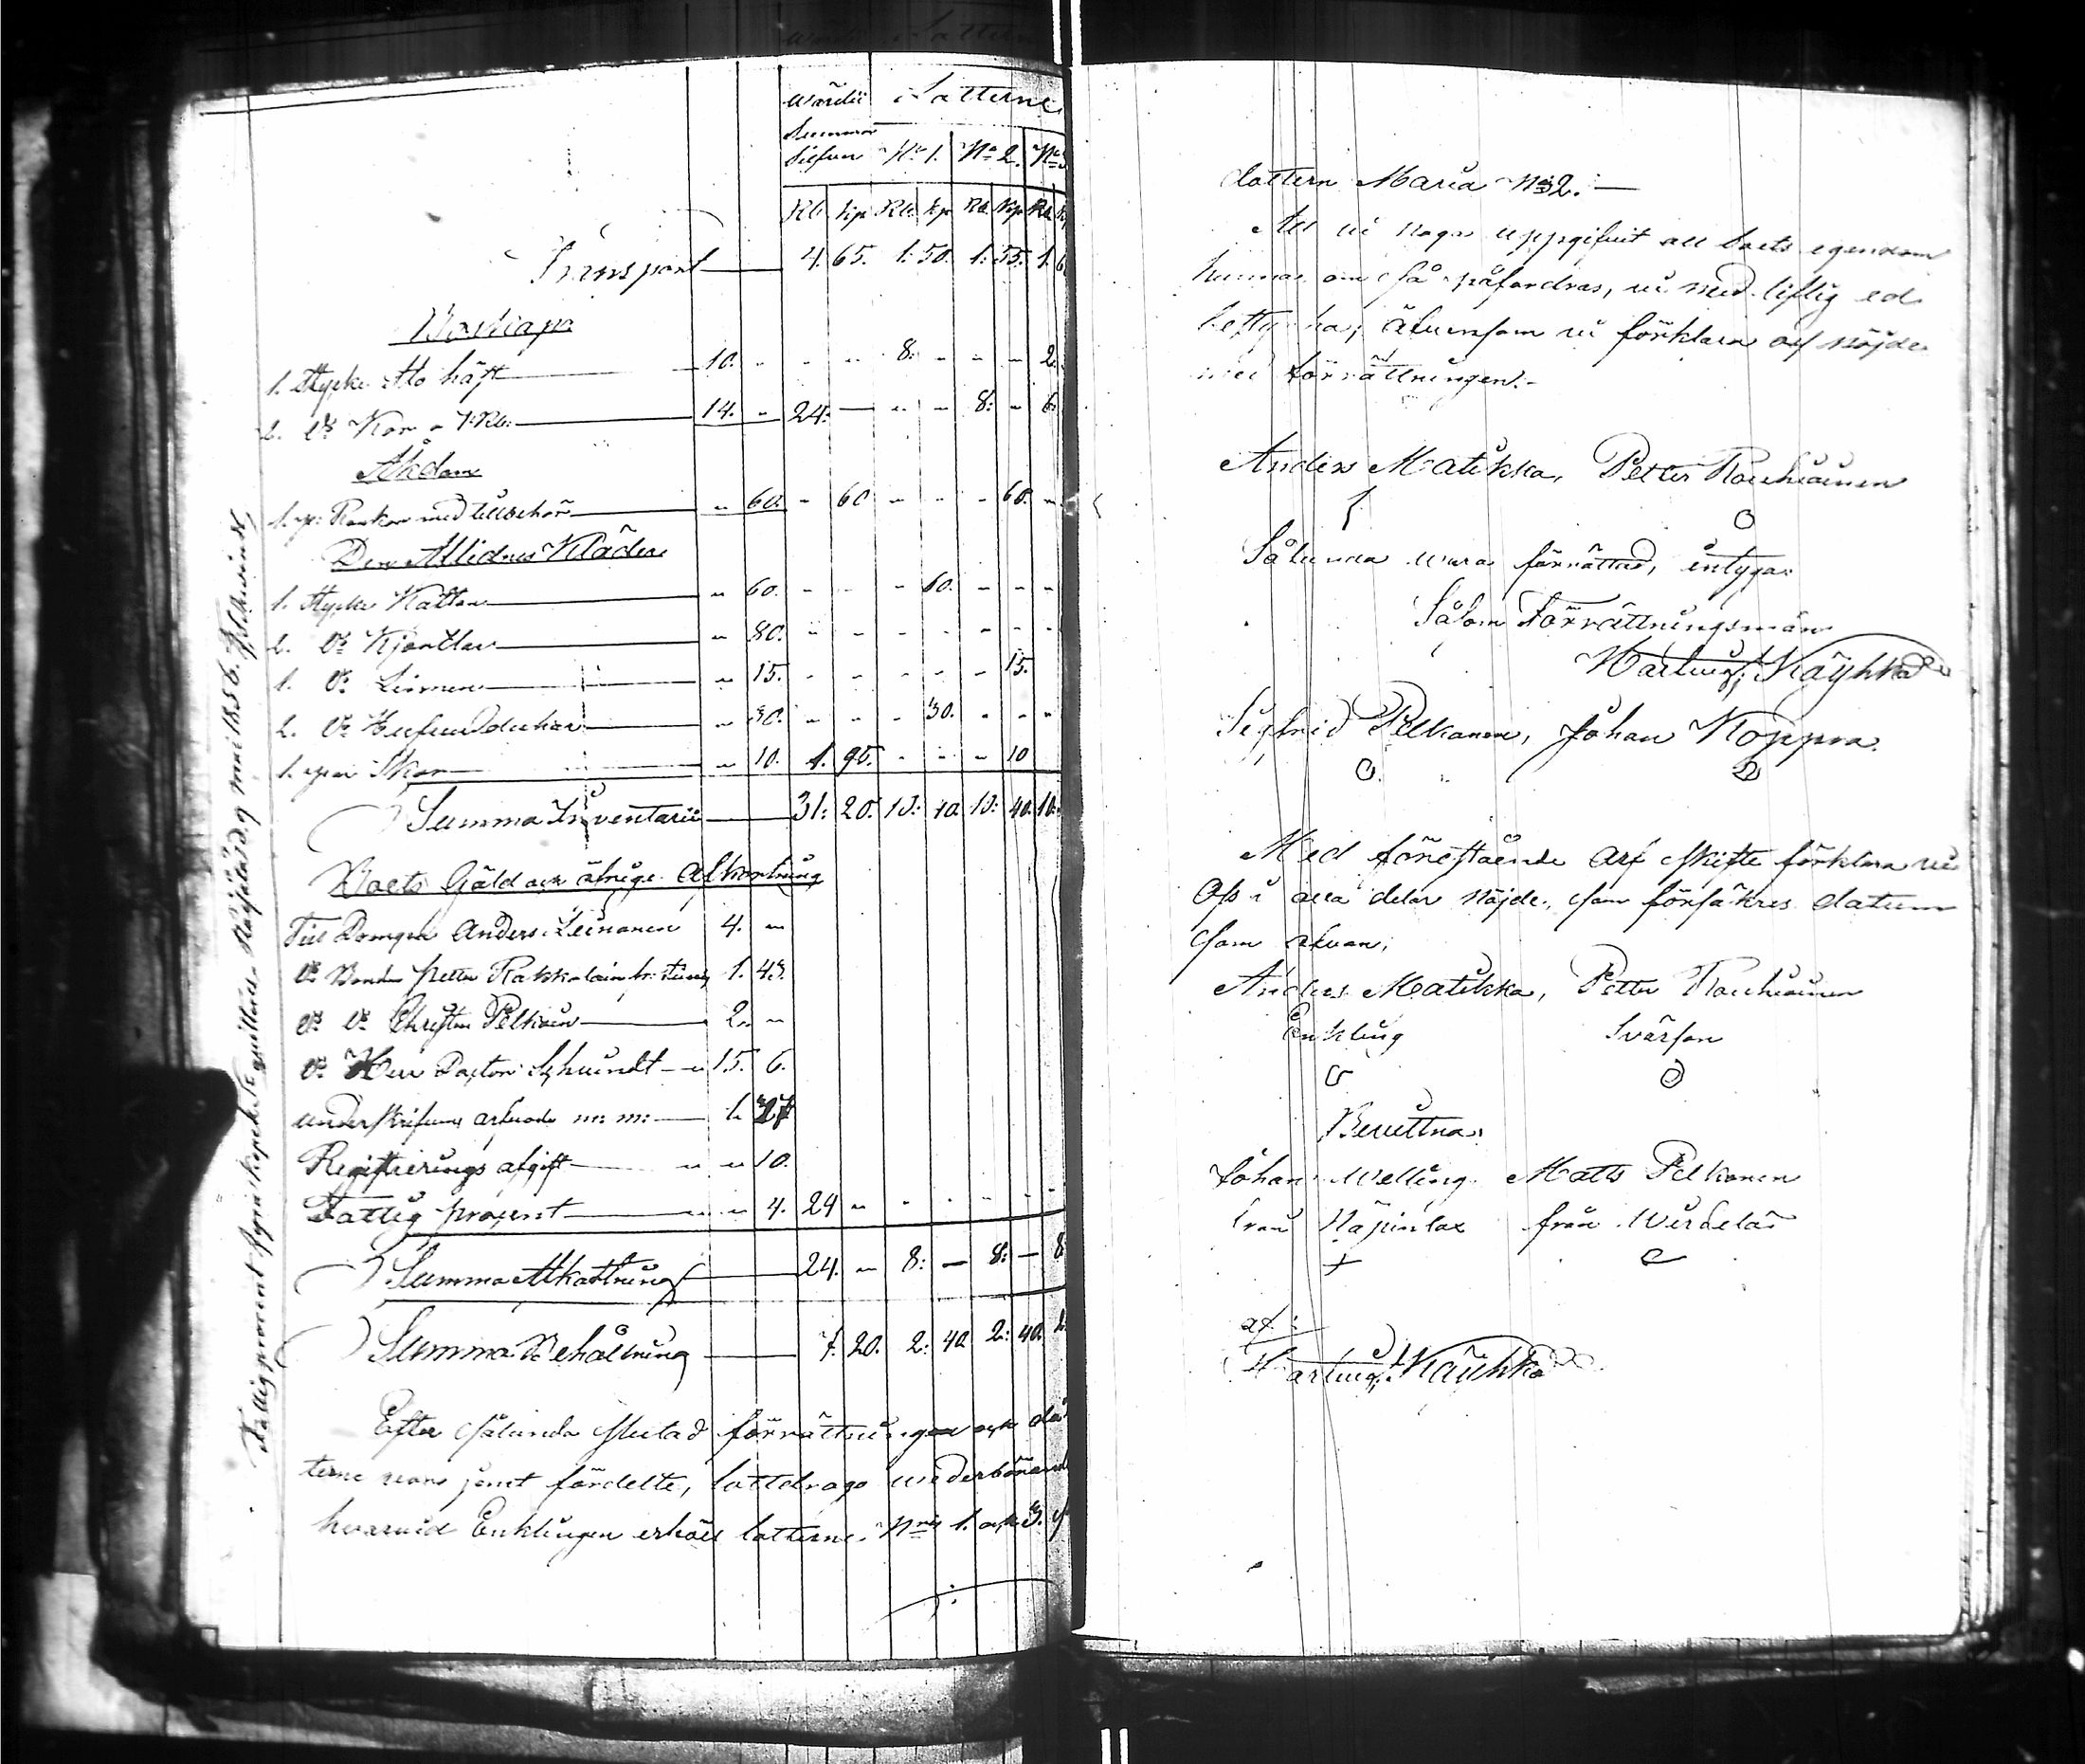 wärdie Lotterne
Summor
Siefror No 1. No 2. No 3
Rb kp Rb kp Rb kp Rb k
Transport 4. 65. 1. 50. 1. 55. 1. 6
Boskap
1. stycke Sto häst 10. - - - 8. - - - 2.
2. do Kor a 7 Rb. 14. - 24. - - - 8. - 6.
Åkdon
1. pr med tillbehör - 60. - 60 - - - 60. -
Den Aflidnes Kläder
1. stycke Kattan - 60. - - - 60. - - -
2. do Kjortlar - 80. - - - - - - -
1. do Linnen - 15. - - - - - 15.
2. do Hufvuddukar - 30. - - - 30. - - -
1. par Skor - 10. 1. 95. - - - 10
Summa Inventarii 31. 20. 10. 40. 10. 40. 10.
Boets Gäld och öfrige Afkortning
Till Domgen Anders Leinonen 4. -
do Bonden Petter 1. 43.
do do Christer Pelkoin 2. -
do Herr Pastor Schwindt - 15. 6.
underskrifvne arfvode m: m: 1. 27
Registrerings afgift - - 10.
Fattig procent - - 4. 24 - - - - - -
Summa Afkortning 24. - 8. - 8. - 8
Summa Behållning 7. 20. 2. 40. 2. 40. 2.
Efter sålunda slutad förrättningen och
terne vore jemt fördelte, lottdrogo
hvarvid Enklingen erhöll lotterne Nris 1. och 3.
Fattigprocent fyra kopek Sr qvitteras d. 9 maii 1856.
dottern Maria No 2. —
Att vi noga uppgifvit all boets egendom
kunna om så påfordras, vi med liflig ed
bestyrka, äfvensom vi förklara oss nöjde
med förrättningen.-
Anders Matikka, Petter Rouhiainen
Sålunda vara förrättad, intygar
Såsom Förrättningsmän
Hartvig Käyhkö
Sigfrid Pelkonen, Johan Koppra.
Med föreståënde Arf skifte förklara vi
Oss i alla delar nöjde, som försäkres datum
som ofvan,
Anders Matikka, Petter Rouhiainen
Enkling Svärson
Bevittna
Johan Welling Matts Pelkonen
från Näpinlax från Wirdelä
af:
Hartvig Käyhkö